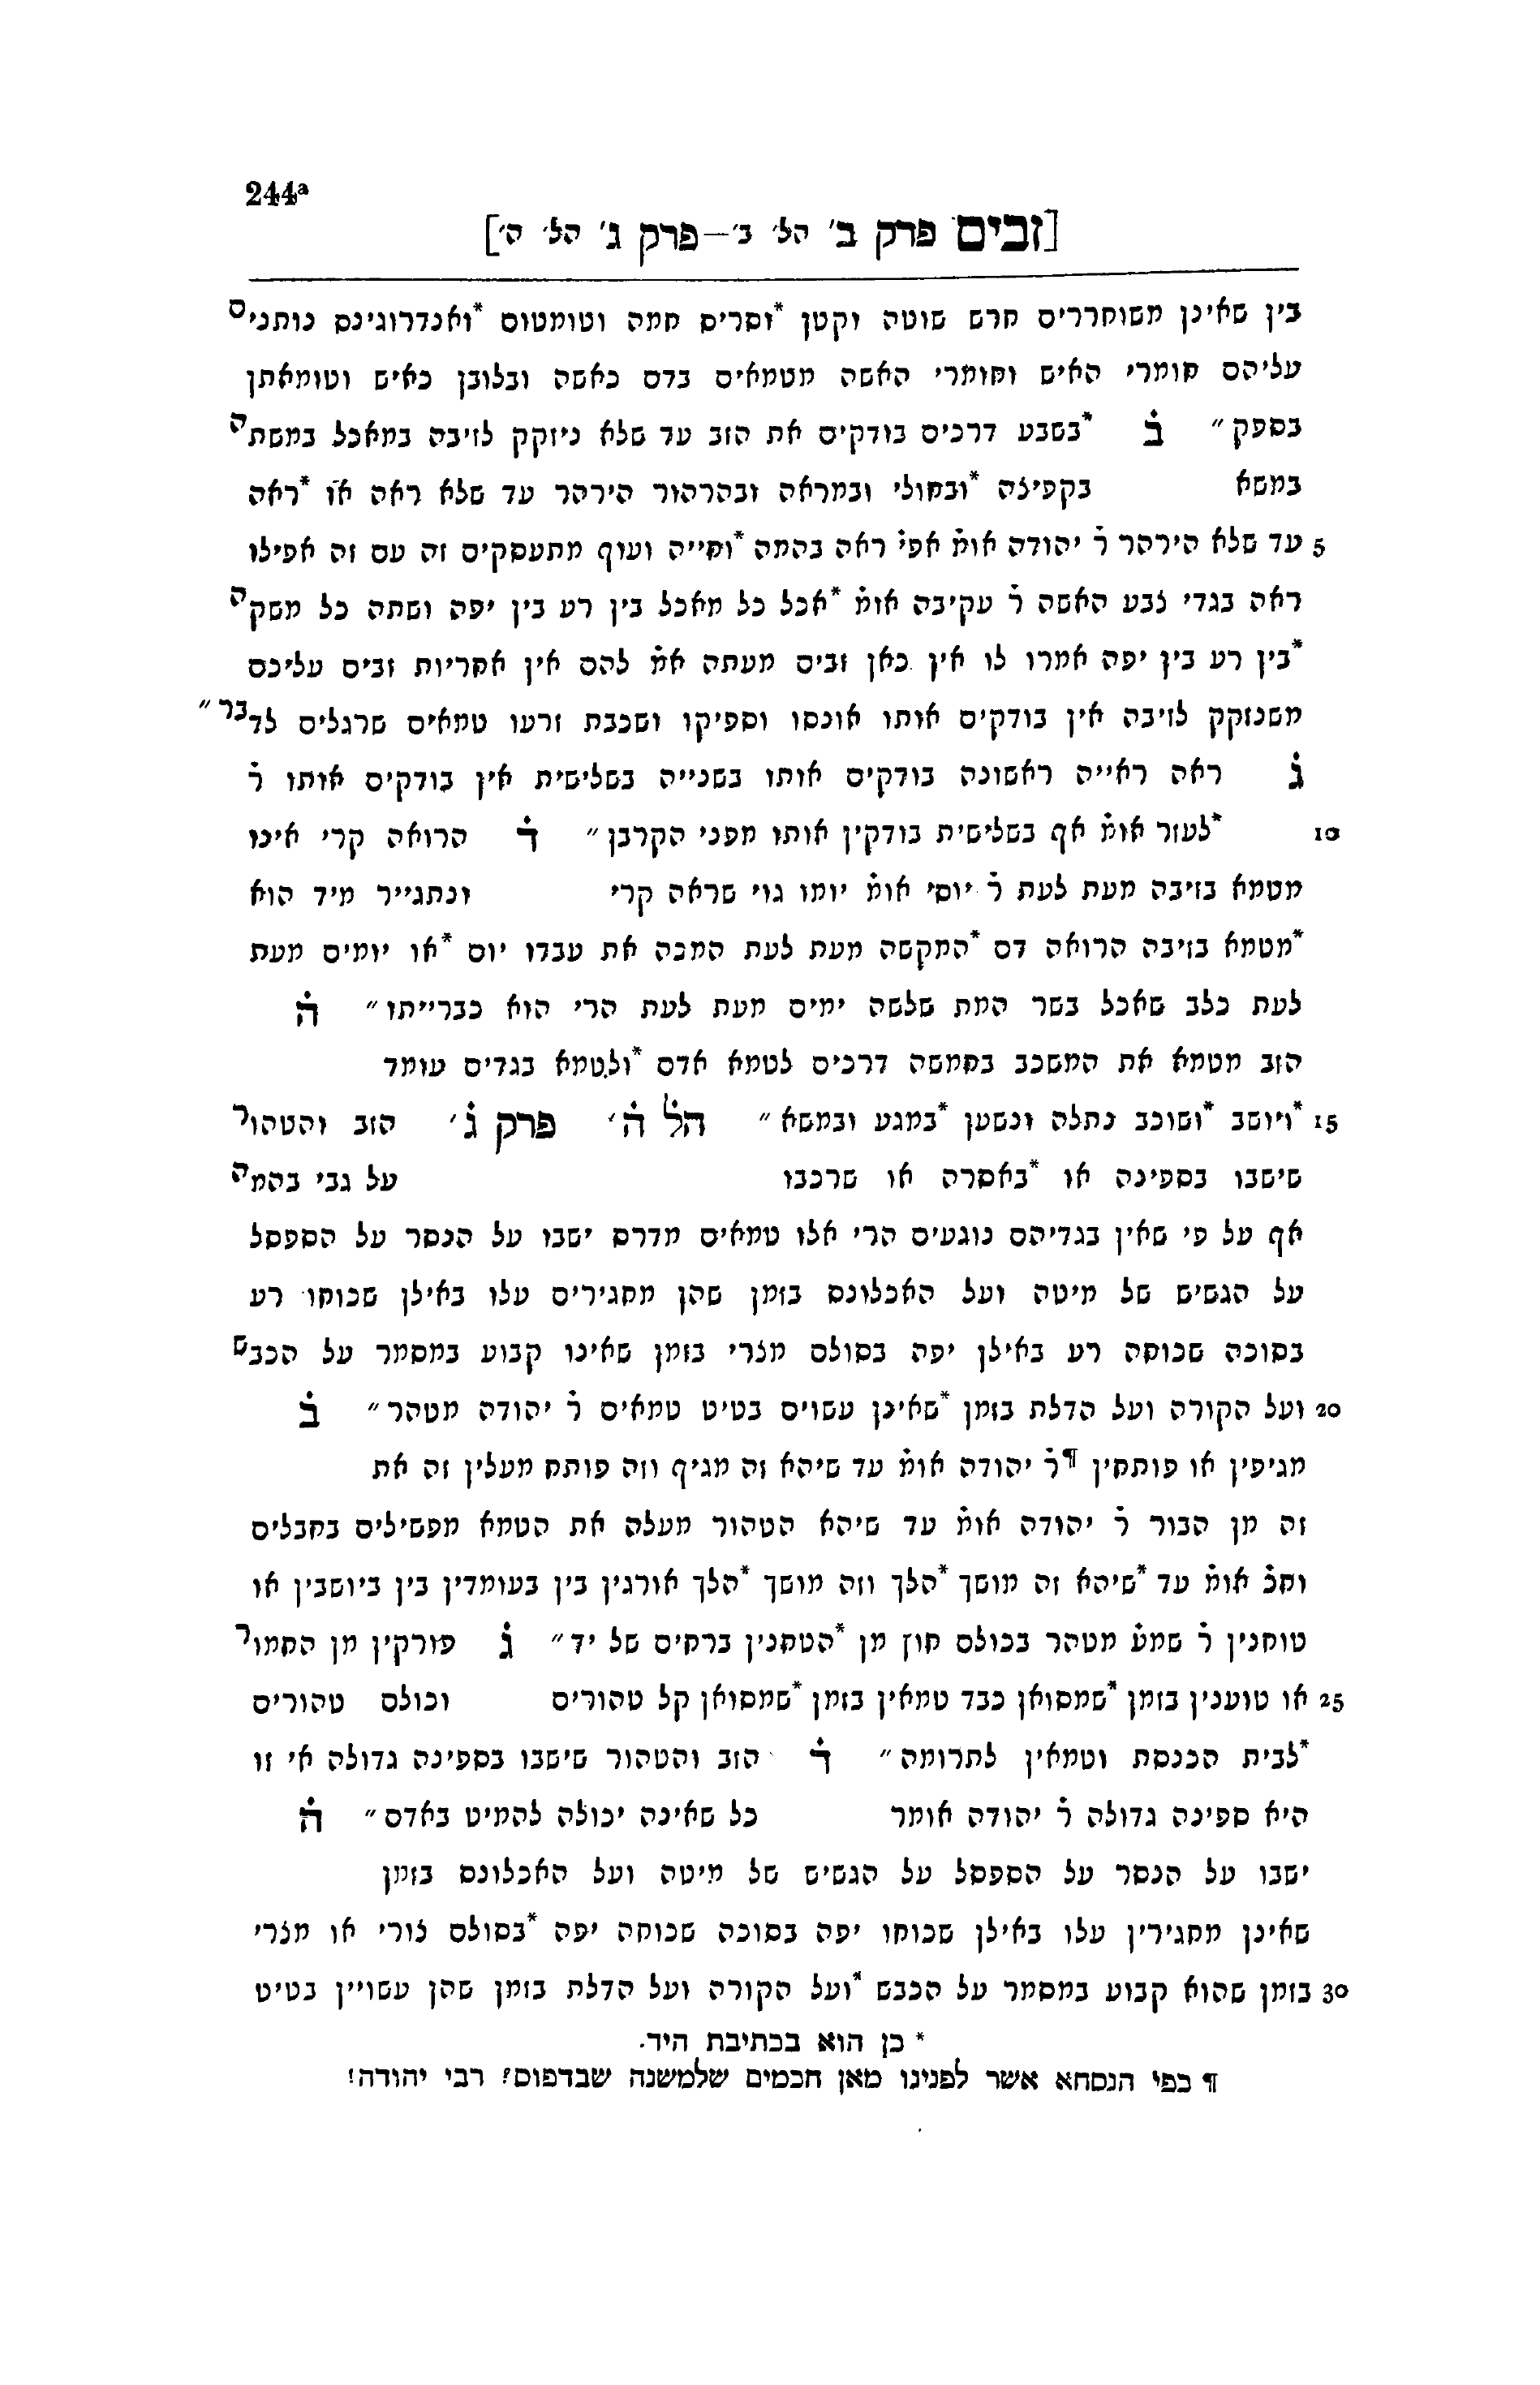 244ª
[זבים פרק ב׳ הל׳ ב׳—פרק ג׳ הל׳ ה׳]
בין שאינן משוחררים חרש שוטה וקטן *וסריס חמה וטומטום *ואנדרוגינס נותנים
עליהם חומרי האיש וחומרי האשה מטמאים בדם כאשה ובלובן כאיש וטומאתן
בספק״ ב *בשבע דרכים בודקים את הזב עד שלא ניזקק לזיבה במאכל במשתה
במשא בקפיצה *ובחולי ובמראה ובהרהור הירהר עד שלא ראה או *ראה
5 עד שלא הירהר ר יהודה אומ אפי ראה בהמה *וחייה ועוף מתעסקים זה עם זה אפילו
ראה בגדי צבע האשה ר עקיבה אומ *אכל כל מאכל בין רע בין יפה ושתה כל משקה
*בין רע בין יפה אמרו לו אין כאן זבים מעתה אמ להם אין אחריות זבים עליכם
משנזקק לזיבה אין בודקים אותו אונסו וספיקו ושכבת זרעו טמאים שרגלים לדבר״
ג ראה ראייה ראשונה בודקים אותו בשנייה בשלישית אין בודקים אותו ר
10 *לעזר אומ אף בשלישית בודקין אותו מפני הקרבן״ ד הרואה קרי אינו
מטמא בזיבה מעת לעת ר יוסי אומ יומו גוי שראה קרי ונתגייר מיד הוא
*מטמא בזיבה הרואה דם *המקשה מעת לעת המכה את עבדו יום *או יומים מעת
לעת כלב שאכל בשר המת שלשה ימים מעת לעת הרי הוא כברייתו״ ה
הזב מטמא את המשכב בחמשה דרכים לטמא אדם *ולטמא בגדים עומד
15 *ויושב *ושוכב נתלה ונשען *במגע ובמשא״ הל ה׳ פרק ג׳ הזב והטהור
שישבו בספינה או *באסרה או שרכבו על גבי בהמה
אף על פי שאין בגדיהם נוגעים הרי אלו טמאים מדרס ישבו על הנסר על הספסל
על הגשיש של מיטה ועל האכלונס בזמן שהן מחגירים עלו באילן שכוחו רע
בסוכה שכוחה רע באילן יפה בסולם מצרי בזמן שאינו קבוע במסמר על הכבש
20 ועל הקורה ועל הדלת בזמן *שאינן עשוים בטיט טמאים ר יהודה מטהר״ ב
מגיפין או פותחין ¶ר יהודה אומ עד שיהא זה מגיף וזה פותח מעלין זה את
זה מן הבור ר יהודה אומ עד שיהא הטהור מעלה את הטמא מפשילים בחבלים
וחכ אומ עד *שיהא זה מושך *הלך וזה מושך *הלך אורגין בין בעומדין בין ביושבין או
טוחנין ר שמע מטהר בכולם חוץ מן *הטחנין ברחים של יד״ ג פורקין מן החמור
25 או טוענין בזמן *שמסואן כבד טמאין בזמן *שמסואן קל טהורים וכולם טהורים
*לבית הכנסת וטמאין לתרומה״ ד הזב והטהור שישבו בספינה גדולה אי זו
היא ספינה גדולה ר יהודה אומר כל שאינה יכולה להמיט באדם״ ה
ישבו על הנסר על הספסל על הגשיש של מיטה ועל האכלונס בזמן
שאינן מחגירין עלו באילן שכוחו יפה בסוכה שכוחה יפה *בסולם צורי או מצרי
30 בזמן שהוא קבוע במסמר על הכבש *ועל הקורה ועל הדלת בזמן שהן עשויין בטיט
* כן הוא בכתיבת היד.
¶ כפי הנסחא אשר לפנינו מאן חכמים שלמשנה שבדפוס? רבי יהודה!